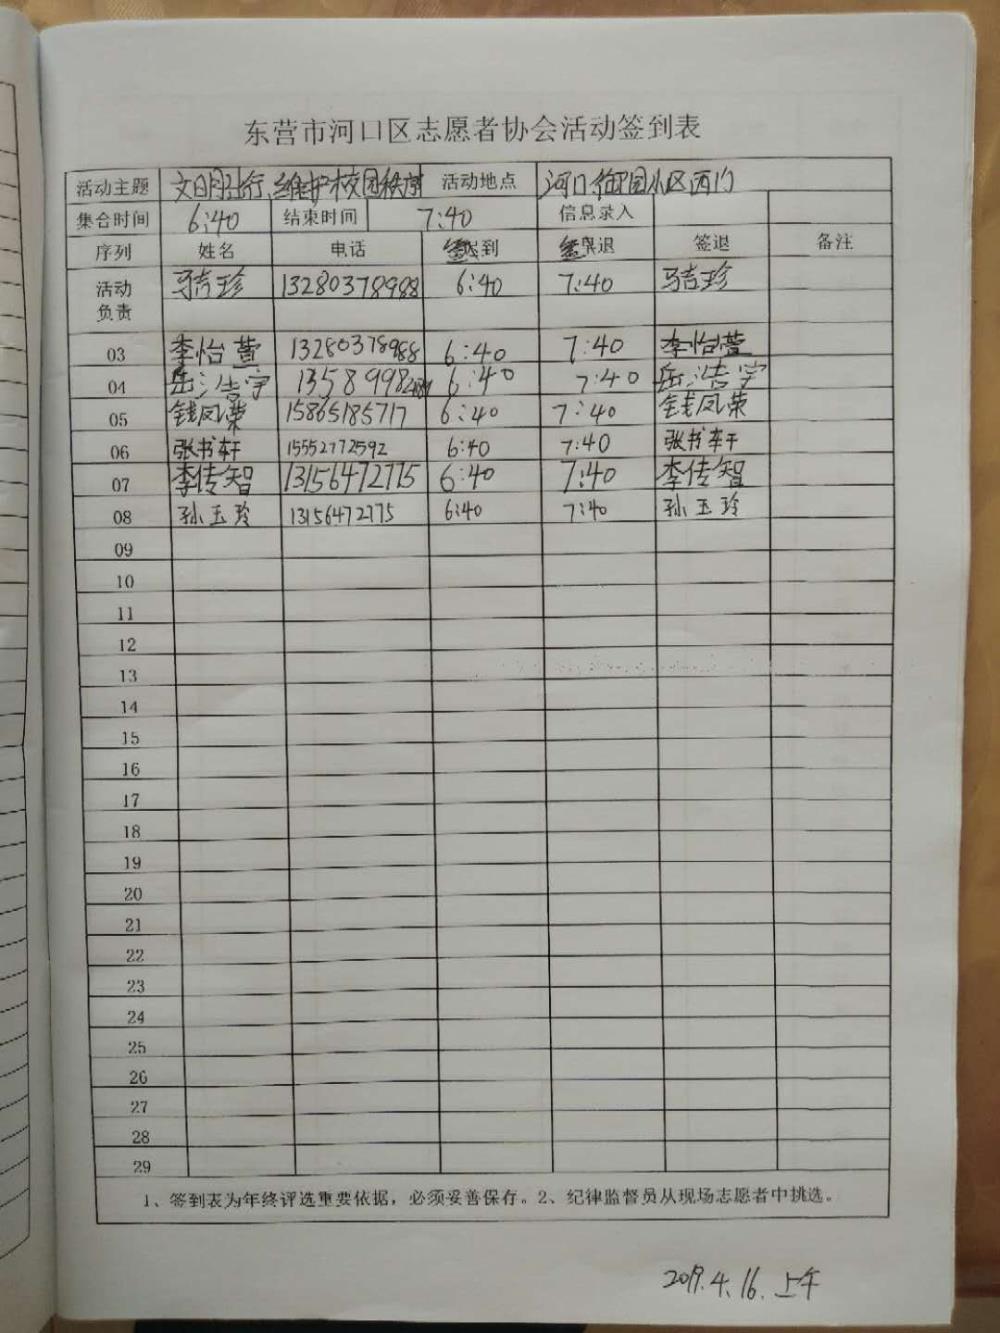 东营市河口区志愿者协会活动签到表
活动主题 文明出行、维护校园秩序 活动地点 河口御园小区西门
集合时间 6:40 结束时间 7:40 信息录入
序列 姓名 电话 签到 签退 签退 备注
活动负责 马吉珍 13280378988 6:40 7:40 马吉珍
03 李怡萱 13280378988 6:40 7:40 李怡萱
04 岳浩宇 6:40 7:40 岳浩宇
05 钱凤荣 15865185717 6:40 7:40 钱凤荣
06 张书轩 15552772592 6:40 7:40 张书轩
07 李传智 13156472775 6:40 7:40 李传智
08 孙玉玲 13156472775 6:40 7:40 孙玉玲
09
10
11
12
13
14
15
16
17
18
19
20
21
22
23
24
25
26
27
28
29
1、签到表为年终评选重要依据，必须妥善保存。2、纪律监督员从现场志愿者中挑选。
2019.4.16.上午